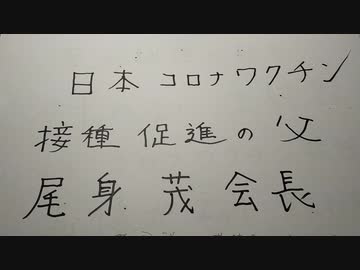 日本 コロナワクチン
接種 促進の父
尾身 茂 会長